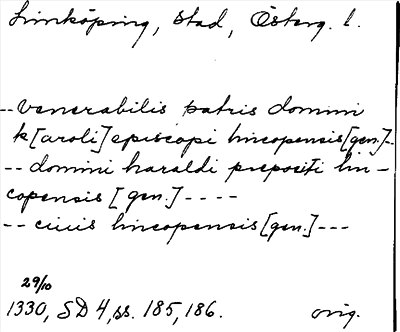 Linköping, stad, Österg. l.
--venerabilis patris domini
k[aroli] episcopi lincopensis [gen.]--
-- domini haraldi prepositi lin-
copensis [gen.] ----
-- ciuis lincopensis [gen.] ---
29/10
1330, SD 4, ss. 185, 186. orig.